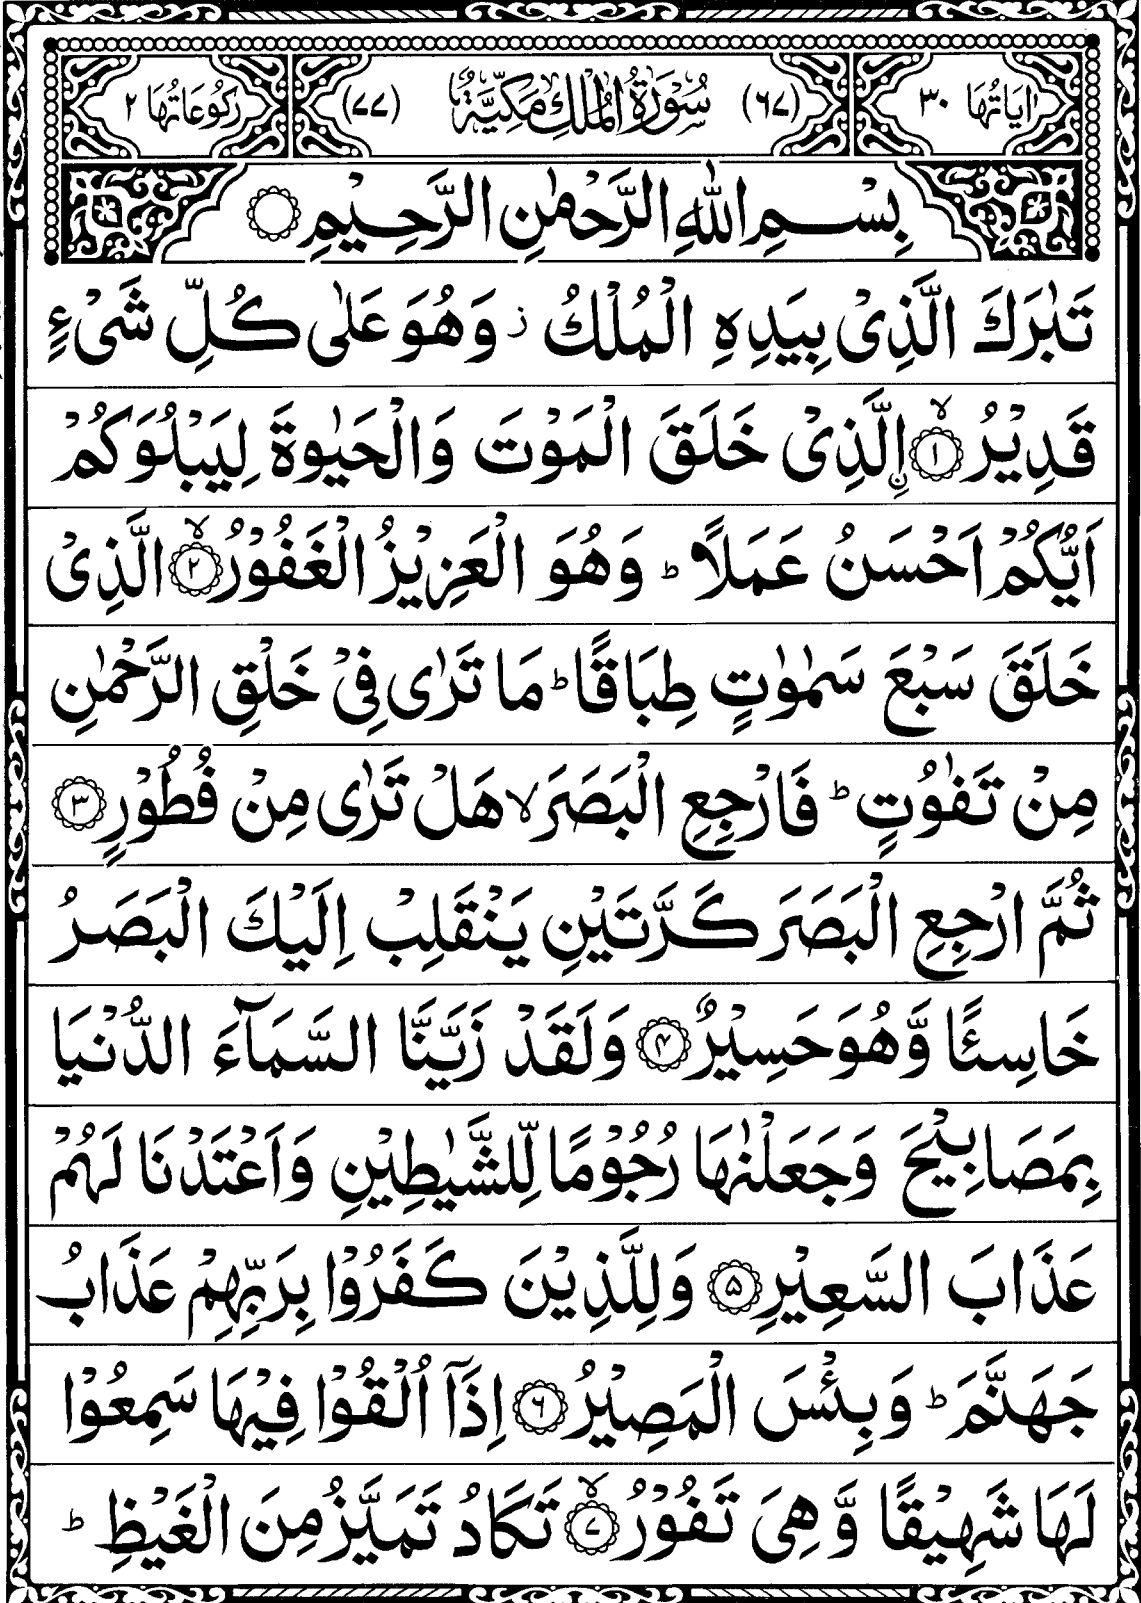 اٰيَاتُهَا ٣٠ (٦٧) سُوْرَةُ الْمُلْكِ مَكِّيَّةٌ (٧٧) رُكُوْعَاتُهَا ٢
بِسْمِ اللّٰهِ الرَّحْمٰنِ الرَّحِيْمِ ○
تَبٰرَكَ الَّذِىْ بِيَدِهِ الْمُلْكُ ز وَهُوَ عَلٰى كُلِّ شَىْءٍ
قَدِيْرُ ۙ﴿۱﴾ اِ۟لَّذِىْ خَلَقَ الْمَوْتَ وَالْحَيٰوةَ لِيَبْلُوَكُمْ
اَيُّكُمْ اَحْسَنُ عَمَلًا ؕ وَهُوَ الْعَزِيْزُ الْغَفُوْرُ ۙ﴿۲﴾ الَّذِىْ
خَلَقَ سَبْعَ سَمٰوٰتٍ طِبَاقًا ؕ مَا تَرٰى فِىْ خَلْقِ الرَّحْمٰنِ
مِنْ تَفٰوُتٍ ؕ فَارْجِعِ الْبَصَرَ ۙ هَلْ تَرٰى مِنْ فُطُوْرٍ ﴿۳﴾
ثُمَّ ارْجِعِ الْبَصَرَ كَرَّتَيْنِ يَنْقَلِبْ اِلَيْكَ الْبَصَرُ
خَاسِئًا وَّهُوَ حَسِيْرٌ ﴿۴﴾ وَلَقَدْ زَيَّنَّا السَّمَآءَ الدُّنْيَا
بِمَصَابِيْحَ وَجَعَلْنٰهَا رُجُوْمًا لِّلشَّيٰطِيْنِ وَاَعْتَدْنَا لَهُمْ
عَذَابَ السَّعِيْرِ ﴿۵﴾ وَلِلَّذِيْنَ كَفَرُوْا بِرَبِّهِمْ عَذَابُ
جَهَنَّمَ ؕ وَبِئْسَ الْمَصِيْرُ ﴿۶﴾ اِذَآ اُلْقُوْا فِيْهَا سَمِعُوْا
لَهَا شَهِيْقًا وَّهِىَ تَفُوْرُ ۙ﴿۷﴾ تَكَادُ تَمَيَّزُ مِنَ الْغَيْظِ ؕ